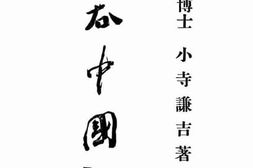 博士 小寺謙吉著
吞中國